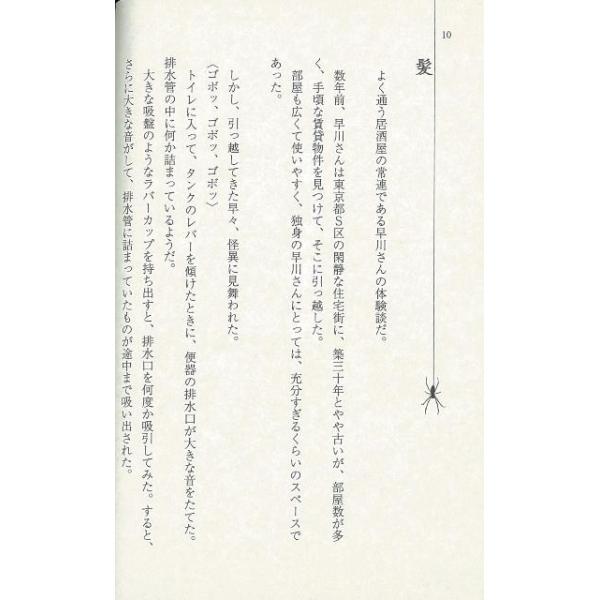 10
髪
よく通う居酒屋の常連である早川さんの体験談だ。
数年前、早川さんは東京都S区の閑静な住宅街に、築三十年とやや古いが、部屋数が多
く、手頃な賃貸物件を見つけて、そこに引っ越した。
部屋も広くて使いやすく、独身の早川さんにとっては、充分すぎるくらいのスペースで
あった。
しかし、引っ越してきた早々、怪異に見舞われた。
〈ゴボッ、ゴボッ、ゴボッ〉
トイレに入って、タンクのレバーを傾けたときに、便器の排水口が大きな音をたてた。
排水管の中に何か詰まっているようだ。
大きな吸盤のようなラバーカップを持ち出すと、排水口を何度か吸引してみた。すると、
さらに大きな音がして、排水管に詰まっていたものが途中まで吸い出された。